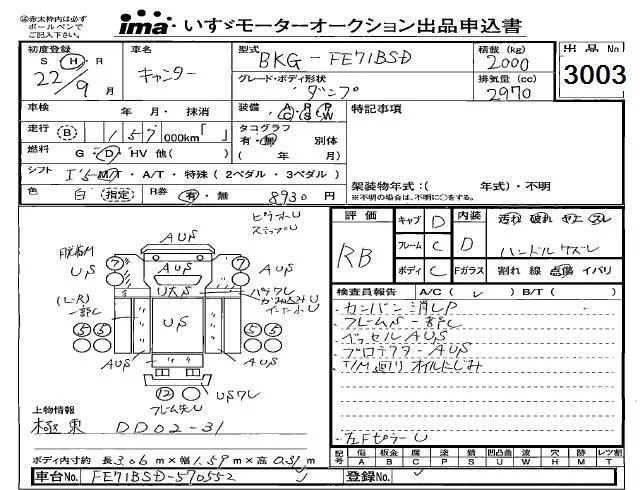 ㊟赤太枠内は必ず
ボールペンで
ご記入下さい。
ima いすゞモーターオークション出品申込書
初度登録
S・H・R
22/9月
車名
キャンター
型式
BKG-FE71BSD
グレード・ボディ形状
ダンプ
積載(kg)
2000
排気量(cc)
2970
出品No
3003
車検 年 月・ 抹消
装備 A/C P/S R P/W
特記事項
走行 B 157 000km「 」
タコグラフ
有・無 別体
( 年 月)
燃料 G・D・HV 他( )
シフト I 5 M/T・A/T・特殊(2ペダル・3ペダル)
色 白 (指定) R券 有・無 8930円
架装物年式:( 年式)・不明
※不明の場合は、不明に○をする。
評価
RB
キャブ D
フレーム C
ボディ C
内装 D
Fガラス
汚れ 破れ ヤニ スレ
ハンドルケズレ
割れ 線 点傷 イバリ
検査員報告 A/C( ✓ ) B/T( )
・カンバン消しP
・フレームS一部C
・ベッセルAUS
・プロテクターAUS
・T/M廻りオイルにじみ
・左FピラーU
AUS
US
(L・R)
一部C
U大S
フレーム先U
上物情報
極東 DD02-31
ボディ内寸約 長3.06m×幅1.59m×高0.31m
車台No. FE71BSD-570552
登録No.
記号 傷 板金 腐 塗 錆 凹凸曲 波 穴 跡 レツ割
A B C P S U W H M T